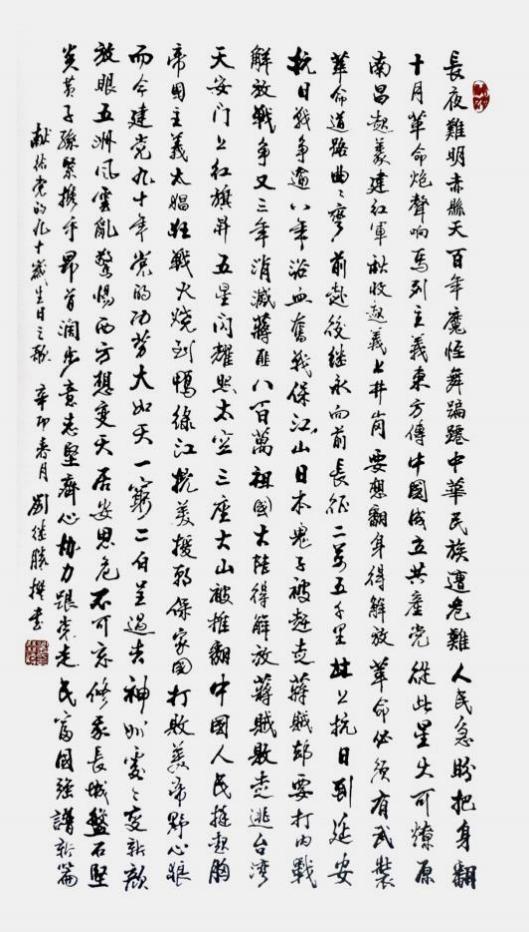 長夜難明赤縣天百年魔怪舞蹁躚中華民族遭危難人民急盼把身翻
十月革命炮聲响馬列主義東方傳中國成立共產党從此星火可燎原
南昌起義建紅軍秋收起義上井岗要想翻身得解放革命必须有武裝
革命道路曲々彎前赴後继永向前長征二萬五千里北上抗日到延安
抗日戰争逾八年浴血奮戰保江山日本鬼子被赶走蔣賊却要打内戰
解放戰争又三年消滅蔣匪八百萬祖國大陸得解放蔣賊敗走逃台湾
天安门上红旗升五星闪耀照太空三座大山被推翻中國人民挺起胸
帝国主義太猖狂戰火烧到鴨绿江抗美援朝保家国打敗美帝野心狼
而今建党九十年党的功劳大如天一窮二白早過去神州處々变新颜
放眼五洲风雲亂警惕西方想变天居安思危不可忘修我長城盤石堅
炎黄子孫緊携手昂首阔步意志堅齊心协力跟党走民富国强譜新篇
献给党的九十岁生日之歌 辛卯春月 劉继勝撰書